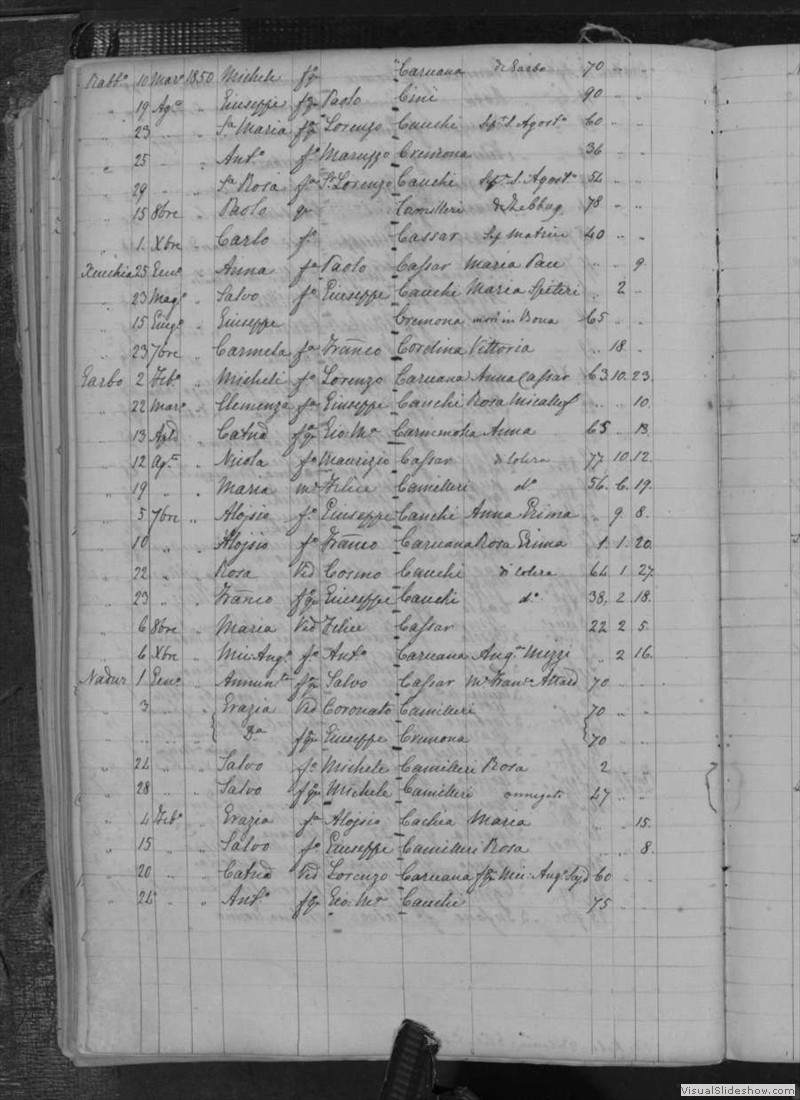 Rabbº 10 Marº 1850 Michele fº qm Caruana di Garbo 70 " "
" 19 Agº " Giuseppe fº qm Paolo Cini 90 " "
" 23 " Sª Maria fª qm Lorenzo Cauchi Sepª S. Agostº 60 " "
" 25 " Antº fº Maruzzo Cremona 36 " "
" 29 " Sª Rosa fª Sr Lorenzo Cauchi Sepª S. Agostº 54 " "
" 15 8bre " Paolo qm Camilleri di Zebbug 78 " "
" 1 Xbre " Carlo fº Cassar Sep Matrice 40 " "
Xeuchia 25 Genº " Anna fª Paolo Cassar Maria Pace " " 9.
" 23 Magº " Salvo fº Giuseppe Cauchi Maria Spiteri " 2 "
" 15 Giugº " Giuseppe Cremona morì in Bona 65 " "
" 23 7bre " Carmela fª Franco Cordina Vittoria " 18 "
Garbo 2 Febº " Micheli fº Lorenzo Caruana Anna Cassar 63. 10. 23.
" 22 Marº " Clemenza fª Giuseppe Cauchi Rosa Micallef " " 10.
" 13 Aple " Catna fª qm Gio: Mª Anna 65 " 13.
" 12 Agº " Nicola fº Maurizio Cassar di Colera 77 10. 12.
" 19 " Maria me Felice Camilleri dº 56. 6. 19.
" 5 7bre " Alojsio fº Giuseppe Cauchi Anna Grima " 9 8.
" 10 " " Alojsio fº Franco Caruana Rosa Grima 1. 1. 20.
" 22 " " Rosa Ved Cosmo Cauchi di Colera 64 1 27.
" 23 " " Franco fº qm Giuseppe Cauchi dº 38. 2. 18.
" 6 8bre " Maria Ved Felice Cassar 22 2 5.
" 6 Xbre " Mic: Angº fº Antº Caruana Angª Mizzi " 2 16.
Nadur 1 Genº " Annunta fª qm Salvo Cassar me Franco Attard 70 " "
" 3 " Grazia Ved Coronato Camilleri 70 " "
" " " Dª fª qm Giuseppe Cremona 70 " "
" 24 " Salvo fº Michele Camilleri Rosa 2
" 28 " Salvo fº qm Michele Camilleri annegato 47 " "
" 4 Febº " Grazia fª Alojsio Cachia Maria " " 15.
" 15 " Salvo fº Giuseppe Camilleri Rosa " " 8.
" 20 " Catna Ved Lorenzo Caruana fª qm Mic: Angº 60 " "
" 24 " Antº fº qm Gio: Mª Cauchi 75 " "
VisualSlideshow.com